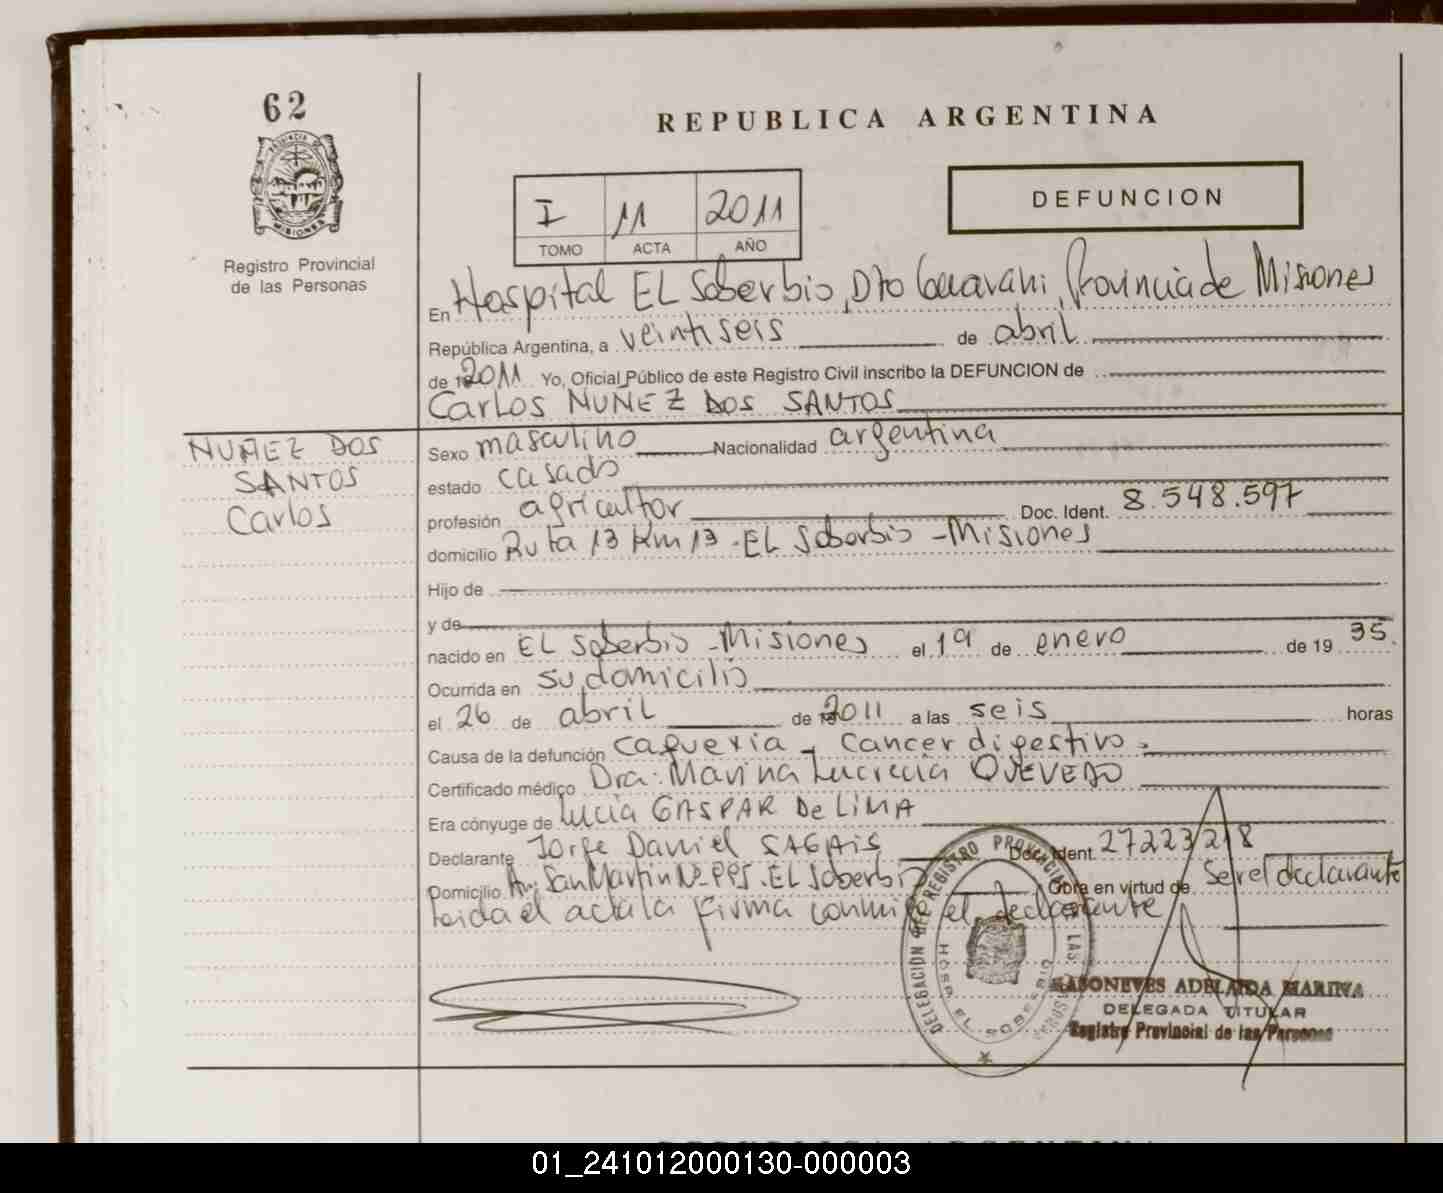 62
PROVINCIA DE MISIONES
Registro Provincial
de las Personas
REPUBLICA ARGENTINA
I 11 2011
TOMO ACTA AÑO
DEFUNCION
En Hospital EL Soberbio, Dto Guarani, Provincia de Misiones
República Argentina, a veintiseis de abril
de 2011 Yo, Oficial Público de este Registro Civil inscribo la DEFUNCION de
Carlos NUÑEZ DOS SANTOS
NUÑEZ DOS
SANTOS
Carlos
Sexo masculino Nacionalidad argentina
estado casado
profesión agricultor Doc. Ident. 8.548.597
domicilio Ruta 13 Km 13 - EL Soberbio - Misiones
Hijo de
y de
nacido en EL Soberbio - Misiones el 19 de enero de 19 35.
Ocurrida en su domicilio
el 26 de abril de 2011 a las seis horas
Causa de la defunción caquexia - Cancer digestivo.
Certificado médico Dra. Marina Lucrecia QUEVEDO
Era cónyuge de Lucia GASPAR De LIMA
Declarante Jorge Daniel SAGAIS Doc. Ident. 27223218
Domicilio Av. San Martin Nº PPS. EL Soberbio Obra en virtud de Ser el declarante
Leida el acta la firma conmigo el declarante
DELEGACIÓN DEL REGISTRO PROVINCIAL DE LAS PERSONAS
HOSP. EL SOBERBIO
MASONEVES ADELAIDA MARINA
DELEGADA TITULAR
Registro Provincial de las Personas
REPUBLICA ARGENTINA
01_241012000130-000003